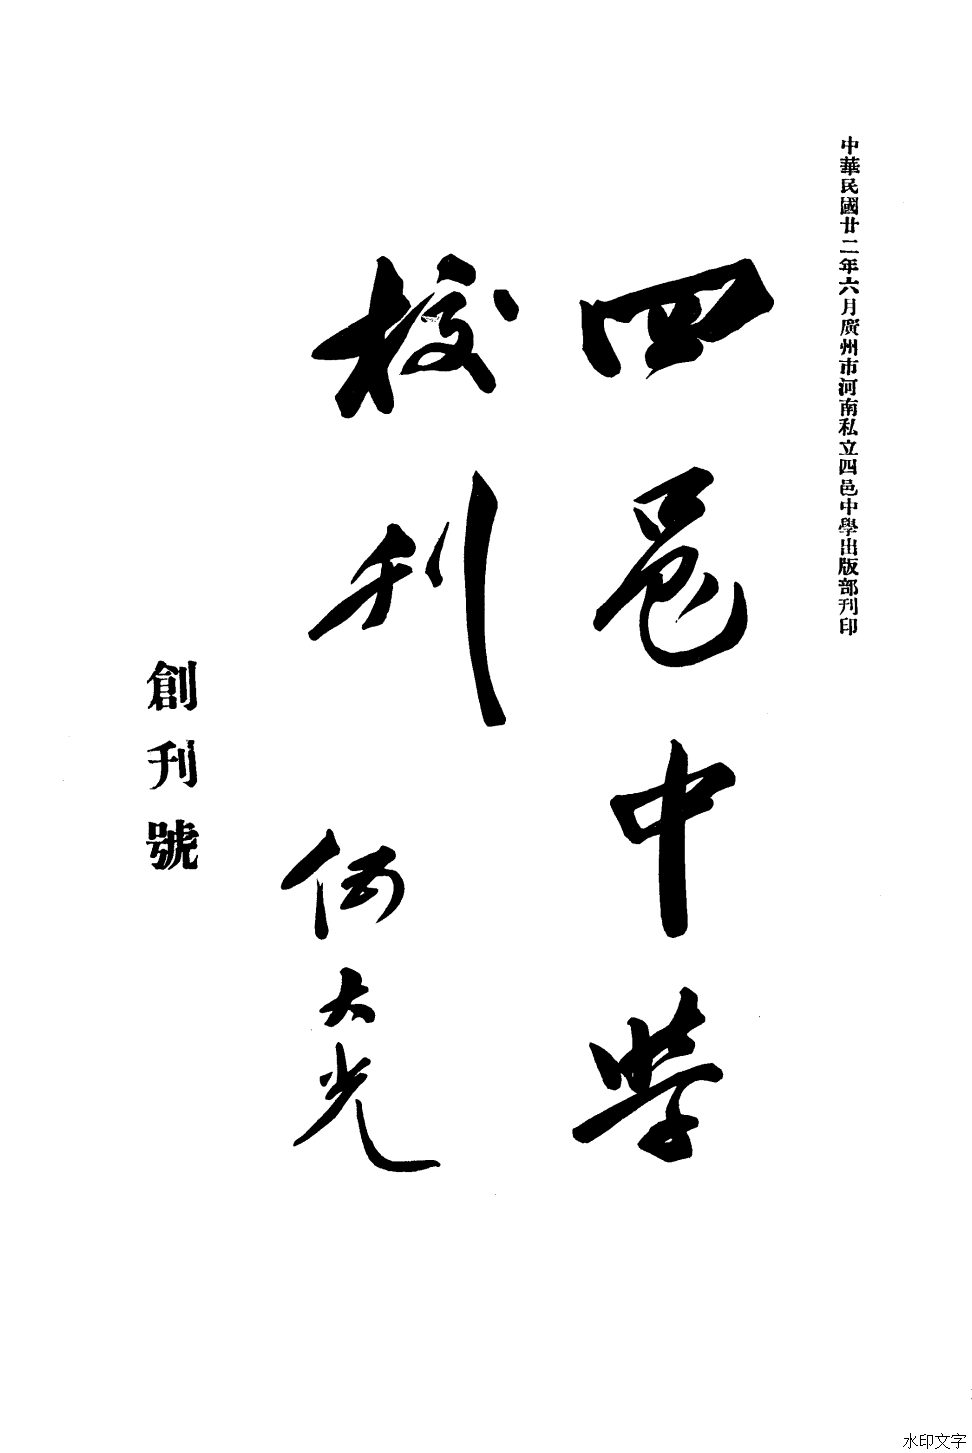 中華民國廿二年六月廣州市河南私立四邑中學出版部刊印
四邑中學
校刊
何大光
創刊號
水印文字